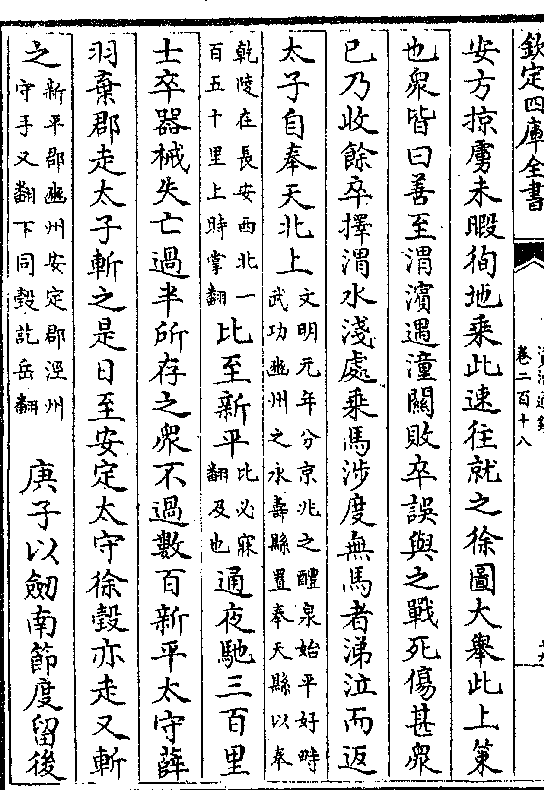 欽定四庫全書
資治通鑑
卷二百十八
安方掠虜未暇徇地乘此速往就之徐圖大舉此上策
也衆皆曰善至渭濱遇潼關敗卒誤與之戰死傷甚衆
已乃收餘卒擇渭水淺處乘馬涉度無馬者涕泣而返
太子自奉天北上
文明元年分京兆之醴泉始平好時
武功豳州之永壽縣置奉天縣以奉
乾陵在長安西北一
百五十里上時掌翻
比至新平
比必寐
翻及也
通夜馳三百里
士卒器械失亡過半所存之衆不過數百新平太守薛
羽棄郡走太子斬之是日至安定太守徐瑴亦走又斬
之
新平郡豳州安定郡涇州
守手又翻下同瑴訖岳翻
庚子以劒南節度留後